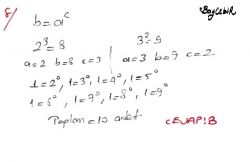 8/
BayCebir
b=a^c
2³=8 | 3²=9
a=2 b=8 c=3 | a=3 b=9 c=2
1=2⁰, 1=3⁰, 1=4⁰, 1=5⁰
1=6⁰, 1=7⁰, 1=8⁰, 1=9⁰
Toplam=10 adet CEVAP:B